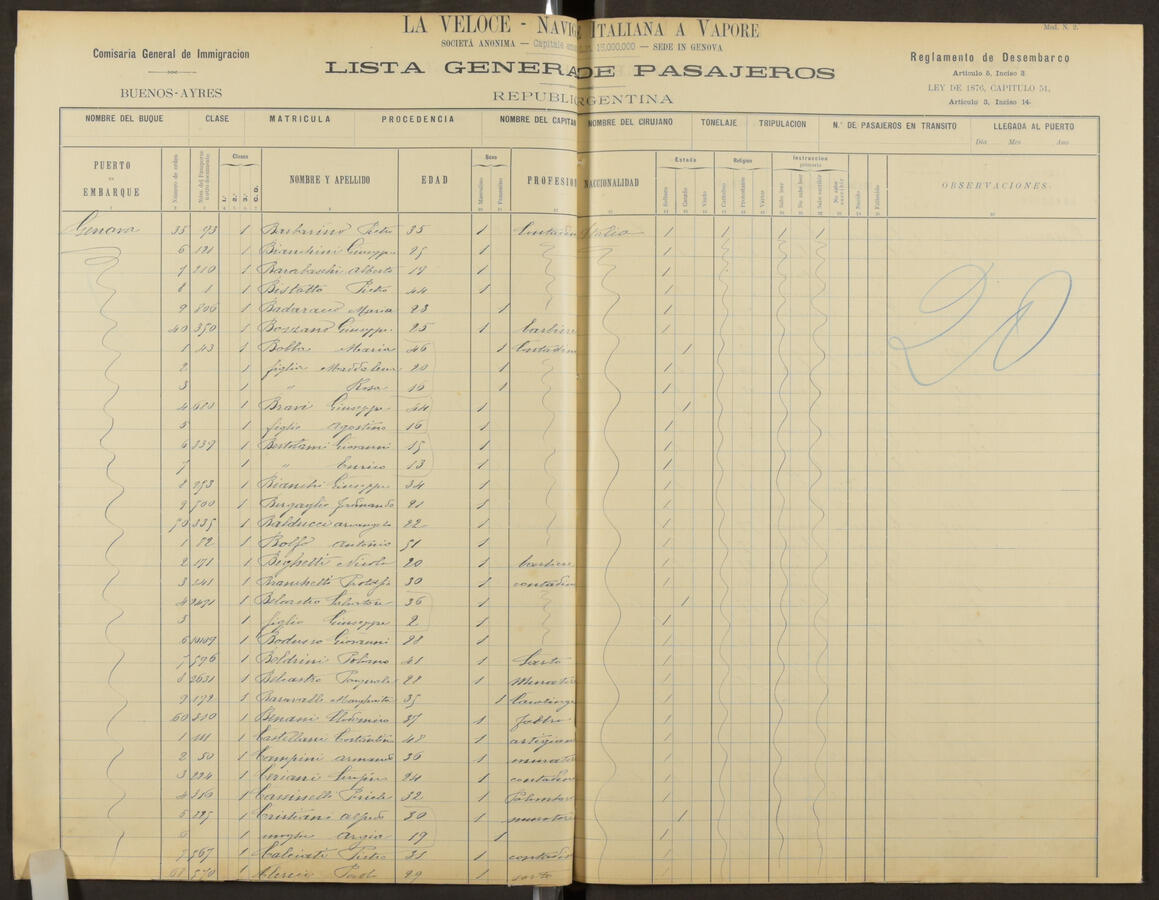 LA VELOCE - NAVIG ITALIANA A VAPORE
Mod. N. 2.
SOCIETÁ ANONIMA — Capitale 15,000,000 — SEDE IN GENOVA
Comisaria General de Immigracion
BUENOS-AYRES
LISTA GENERA DE PASAJEROS
REPUBLI RGENTINA
Reglamento de Desembarco
Articulo 5, Inciso 3
LEY DE 1876, CAPITULO 51,
Articulo 3, Inciso 14
NOMBRE DEL BUQUE CLASE MATRICULA PROCEDENCIA NOMBRE DEL CAPITAN NOMBRE DEL CIRUJANO TONELAJE TRIPULACION N.º DE PASAJEROS EN TRANSITO LLEGADA AL PUERTO
Dia Mes Ano
PUERTO DE EMBARQUE Numero de orden Clases 1.ª 2.ª 3.ª NOMBRE Y APELLIDO EDAD Sexo Masculino Femenino PROFESION NACCIONALIDAD Estado Soltero Casado Viudo Religion Catolico Protestante Varios Instruccion primaria Sabe leer No sabe leer Sabe escribir No sabe escribir Nacido Fallecido OBSERVACIONES
Genova 35 93 1 Barbarino Pietro 35 1 Contadin Italia 1 1 1 1
6 121 1 Bianchini Giuseppe 25 1 1
7 210 1 Barabaschi Alberto 18 1 1
8 1 1 Bistatto Pietro 44 1 1
9 806 1 Badaracco Maria 23 1 1
40 350 1 Bozzano Giuseppe 25 1 barbiere 1
1 43 1 Bobba Maria 46 1 Contadina 1
2 1 figlia Maddalena 20 1 1
3 1 " Rosa 16 1 1
4 680 1 Bravi Giuseppe 44 1 1
5 1 figlio Agostino 16 1 1
6 339 1 Bertolami Giovanni 15 1 1
7 1 " Enrico 13 1 1
8 253 1 Bianchi Giuseppe 34 1 1
9 500 1 Bergaglio Ferdinando 21 1 1
50 335 1 Balducci Arcangelo 22 1 1
1 82 1 Bolfo Antonio 51 1 1
2 171 1 Beghetti Nicola 20 1 barbiere 1
3 241 1 Bianchetti 30 1 contadin 1
4 2471 1 Salvatore 36 1 1
5 1 figlio Giuseppe 2 1 1
6 1 Giovanni 28 1 1
7 596 1 Boldrini 41 1 Sarto 1
8 2631 1 Belcastro Pasquale 28 1 Murator 1
9 172 1 Baravalle Margherita 35 1 1
60 310 1 Benani 37 1 1
1 111 1 Castellani Costantino 48 1 artigian 1
2 50 1 Campini Armando 36 1 murator 1
3 224 1 Ceriani 24 1 contadin 1
4 316 1 Cassinelli 32 1 1
5 225 1 Cristiani Alfredo 30 1 muratore 1
6 1 moglie Argia 19 1 1
7 567 1 Pietro 31 1 contadin 1
68 570 1 29 1 sarto 1
20